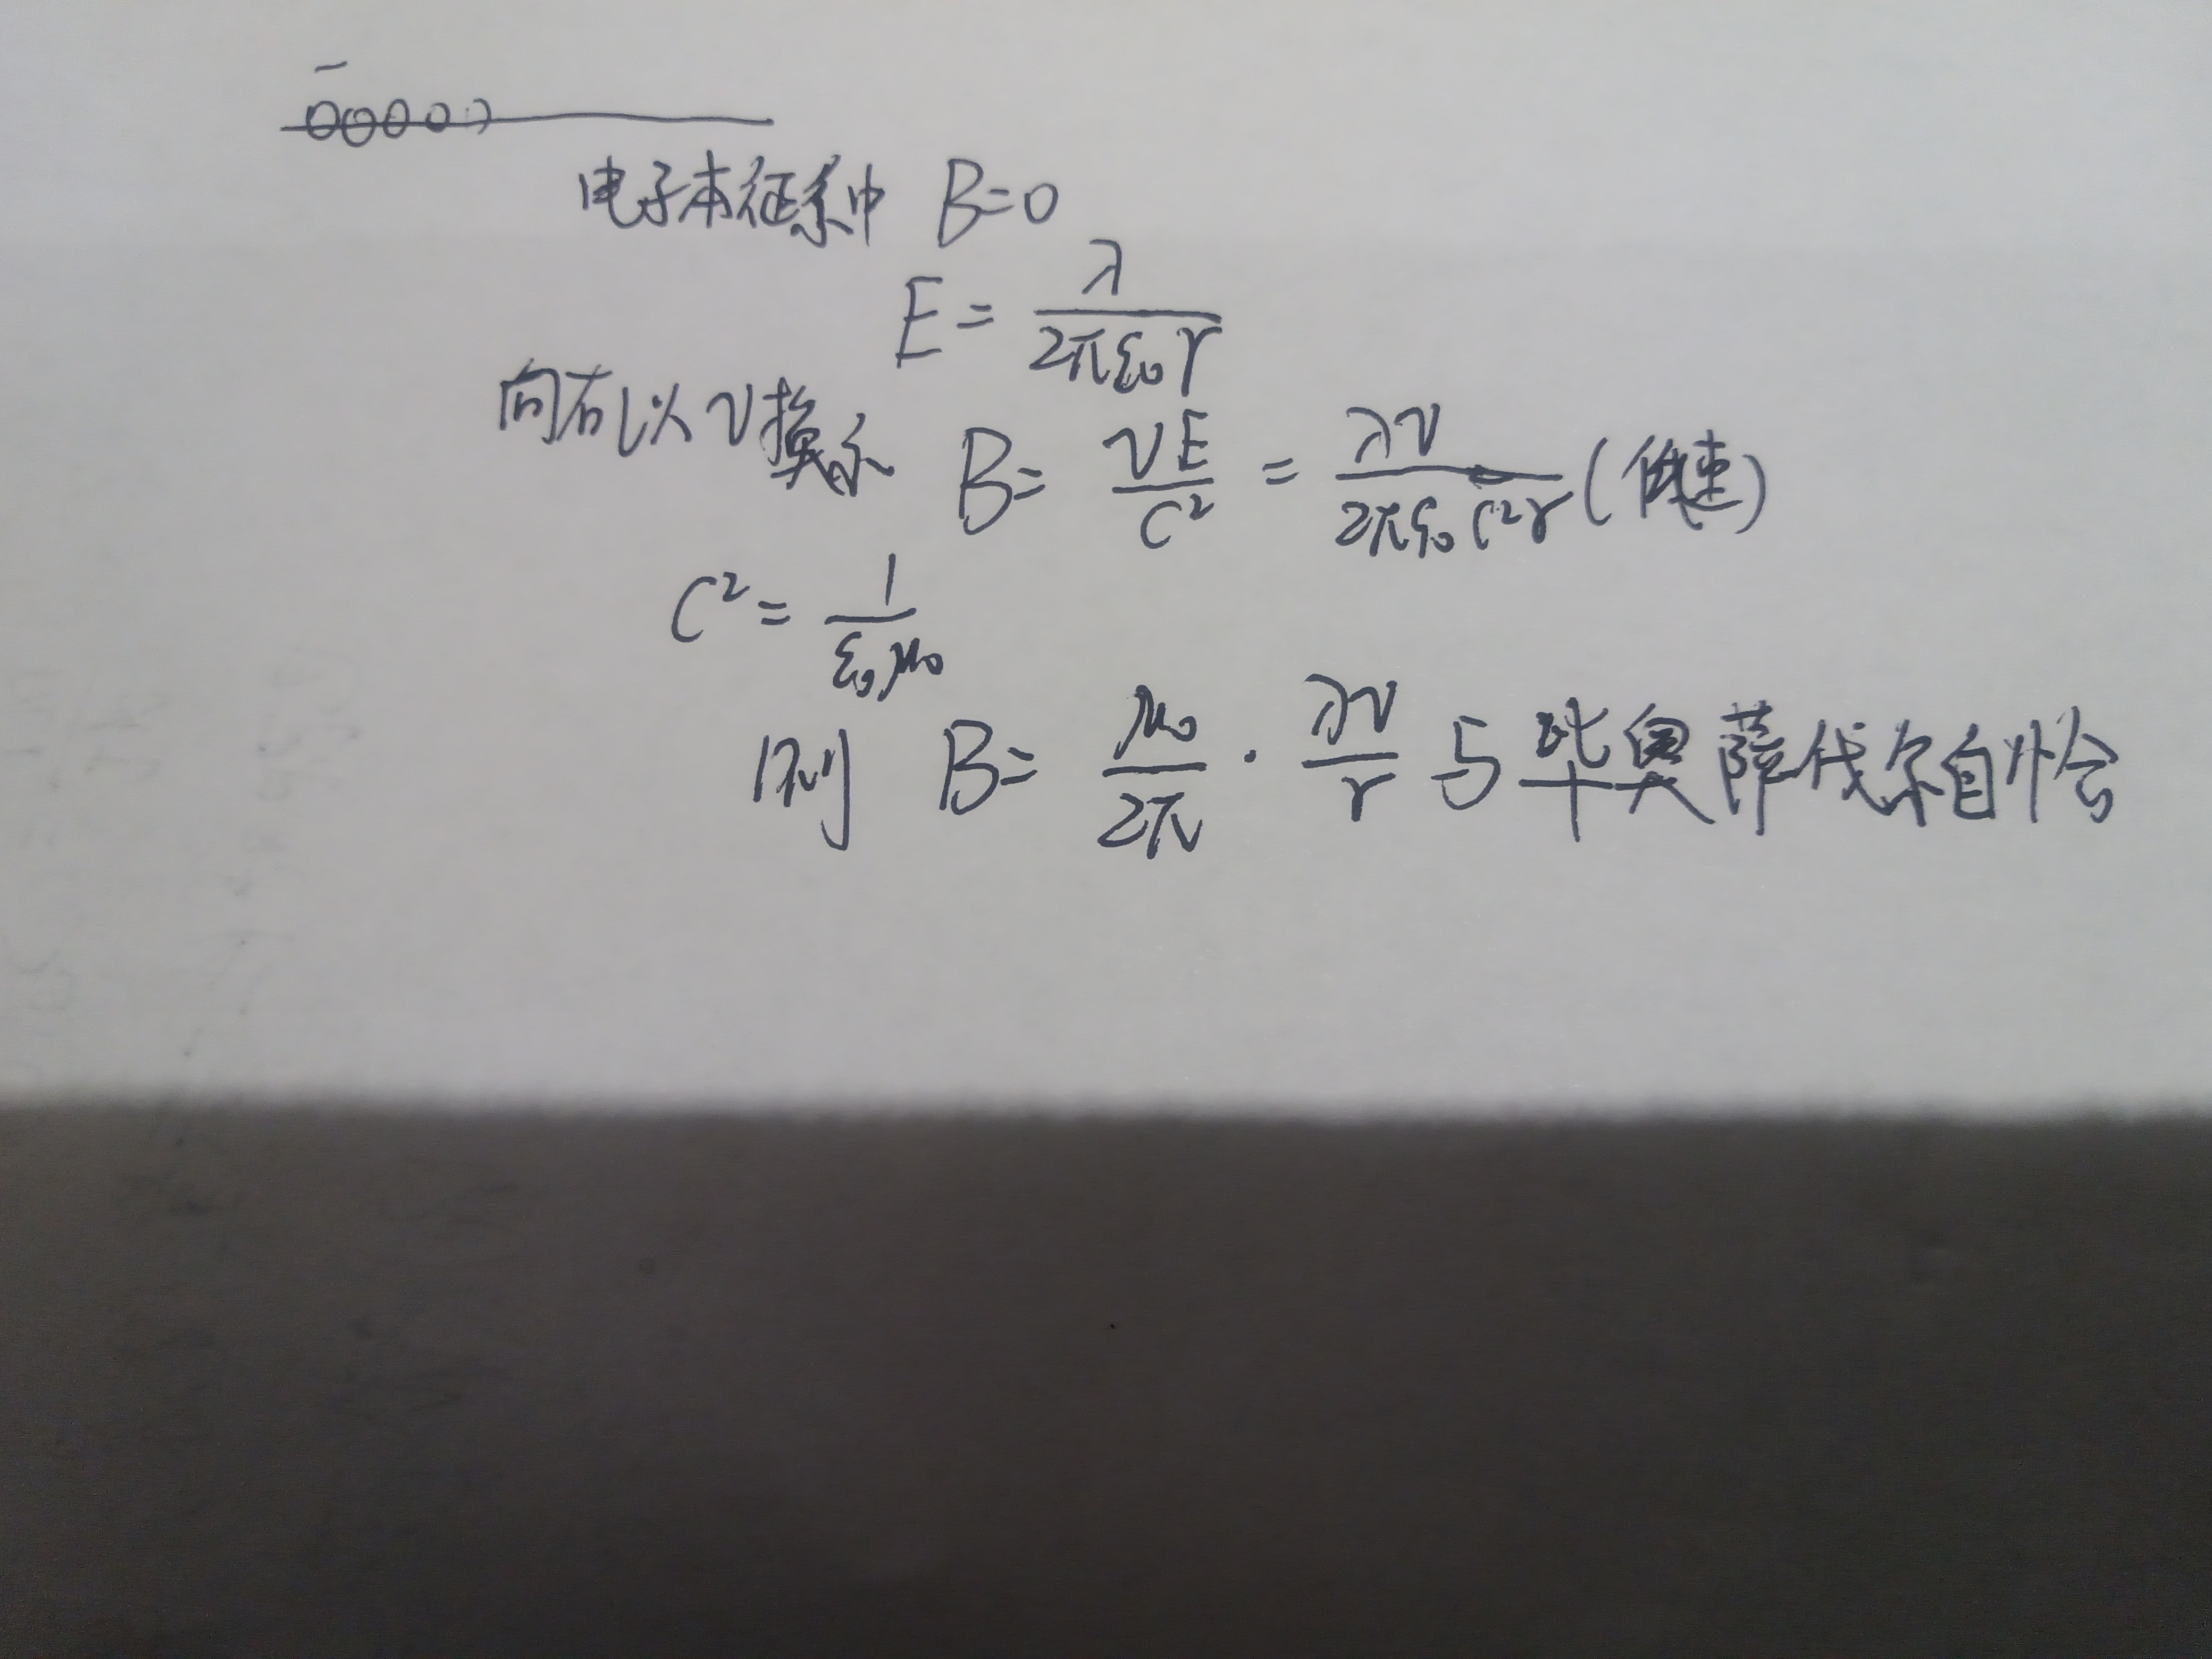 电子本征系中 B=0
E = λ/(2πε₀r)
向右以v换系 B = vE/C² = λv/(2πε₀C²r) (低速)
C² = 1/(ε₀μ₀)
则 B = μ₀/2π · λv/r 与毕奥萨伐尔自恰